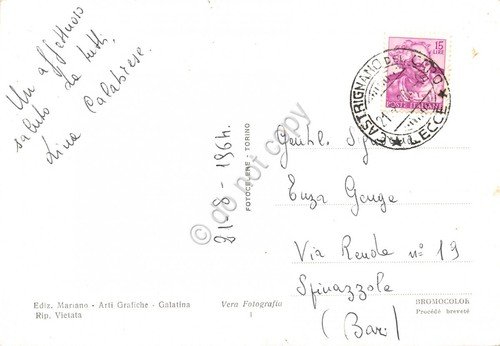 Un affettuoso
saluto da tutti.
Lina Calabrese.
21-8-1964.
FOTOCELERE - TORINO
15
LIRE
POSTE ITALIANE
CASTRIGNANO DEL CAPO
LECCE
21
Gentil.
Enza
Via n° 19
Spinazzola
(Bari)
Ediz. Mariano - Arti Grafiche - Galatina
Rip. Vietata
Vera Fotografia
1
BROMOCOLOR
Procédé breveté
do not copy